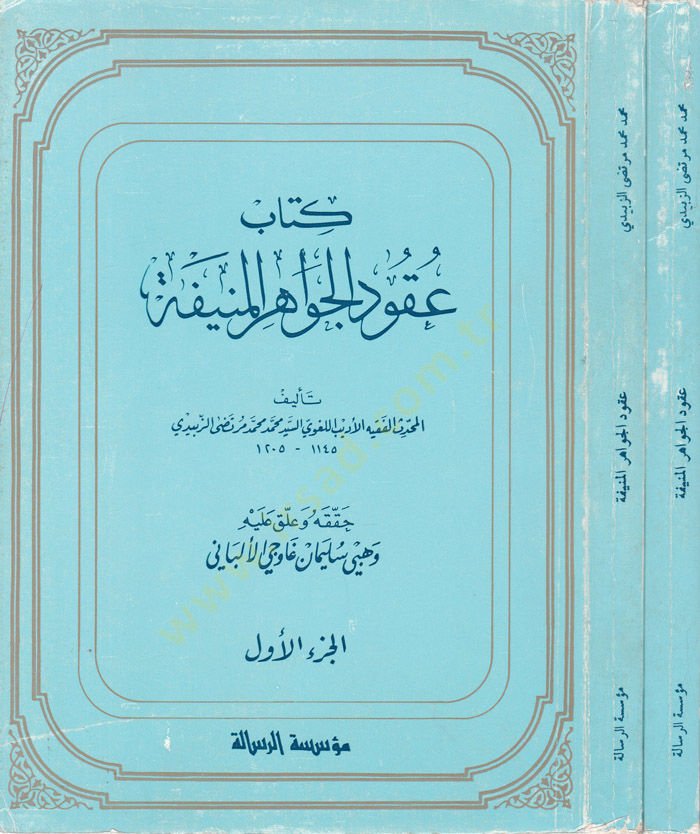 كتاب
عقود الجواهر المنيفة
تأليف
المحدث الفقيه الأديب اللغوي السيد محمد محمد مرتضى الزبيدي
١١٤٥ - ١٢٠٥
حققه وعلق عليه
وهبي سليمان غاوجي الألباني
الجزء الأول
مؤسسة الرسالة
محمد محمد مرتضى الزبيدي
عقود الجواهر المنيفة
مؤسسة الرسالة
محمد محمد مرتضى الزبيدي
عقود الجواهر المنيفة
مؤسسة الرسالة